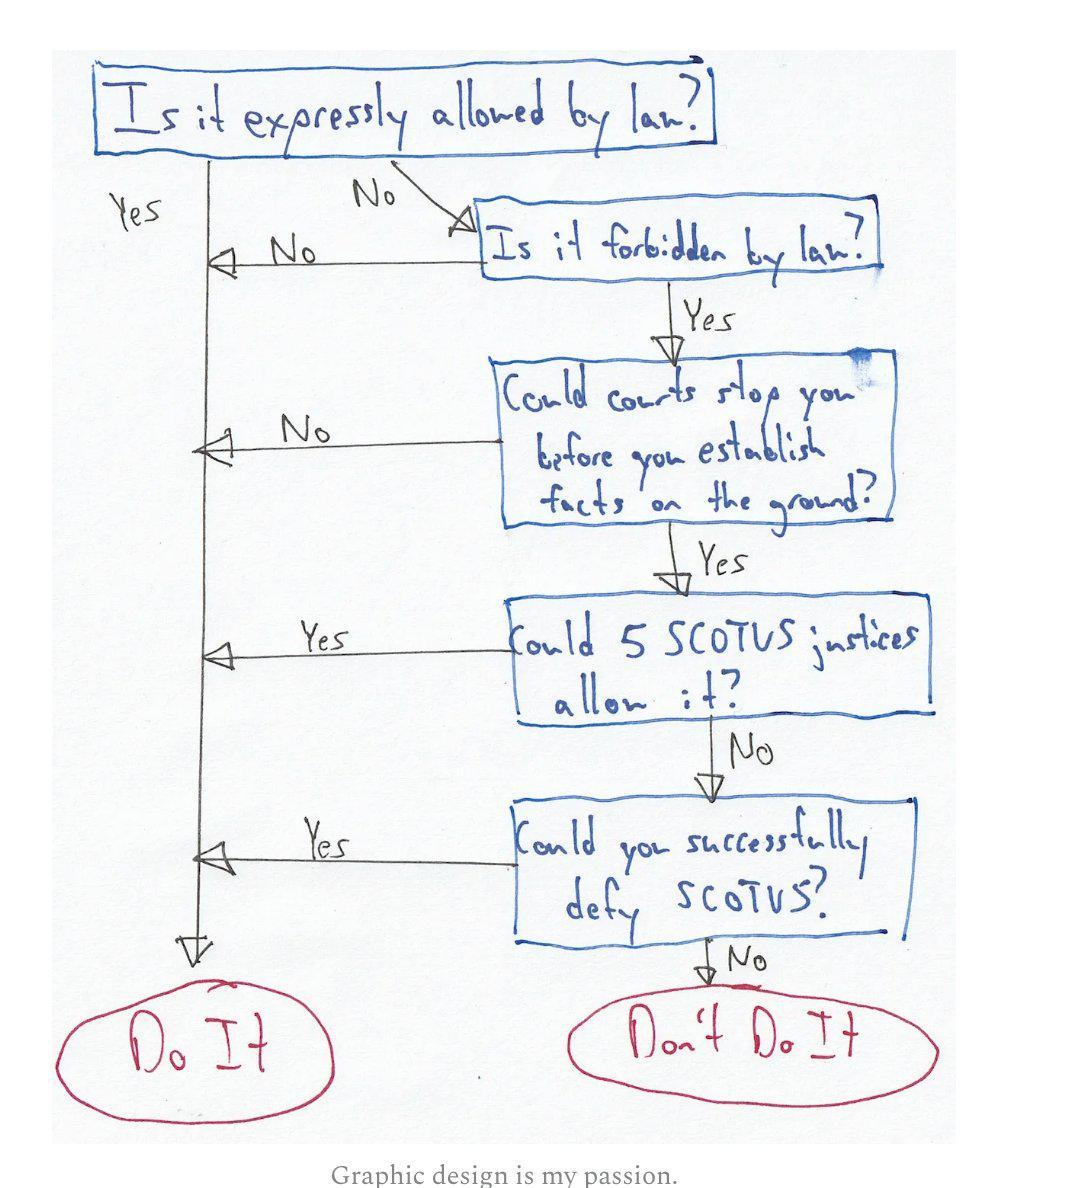 Is it expressly allowed by law?
Yes
No
Is it forbidden by law?
No
Yes
Could courts stop you
before you establish
facts on the ground?
No
Yes
Could 5 SCOTUS justices
allow it?
Yes
No
Could you successfully
defy SCOTUS?
Yes
No
Do It
Don't Do It
Graphic design is my passion.